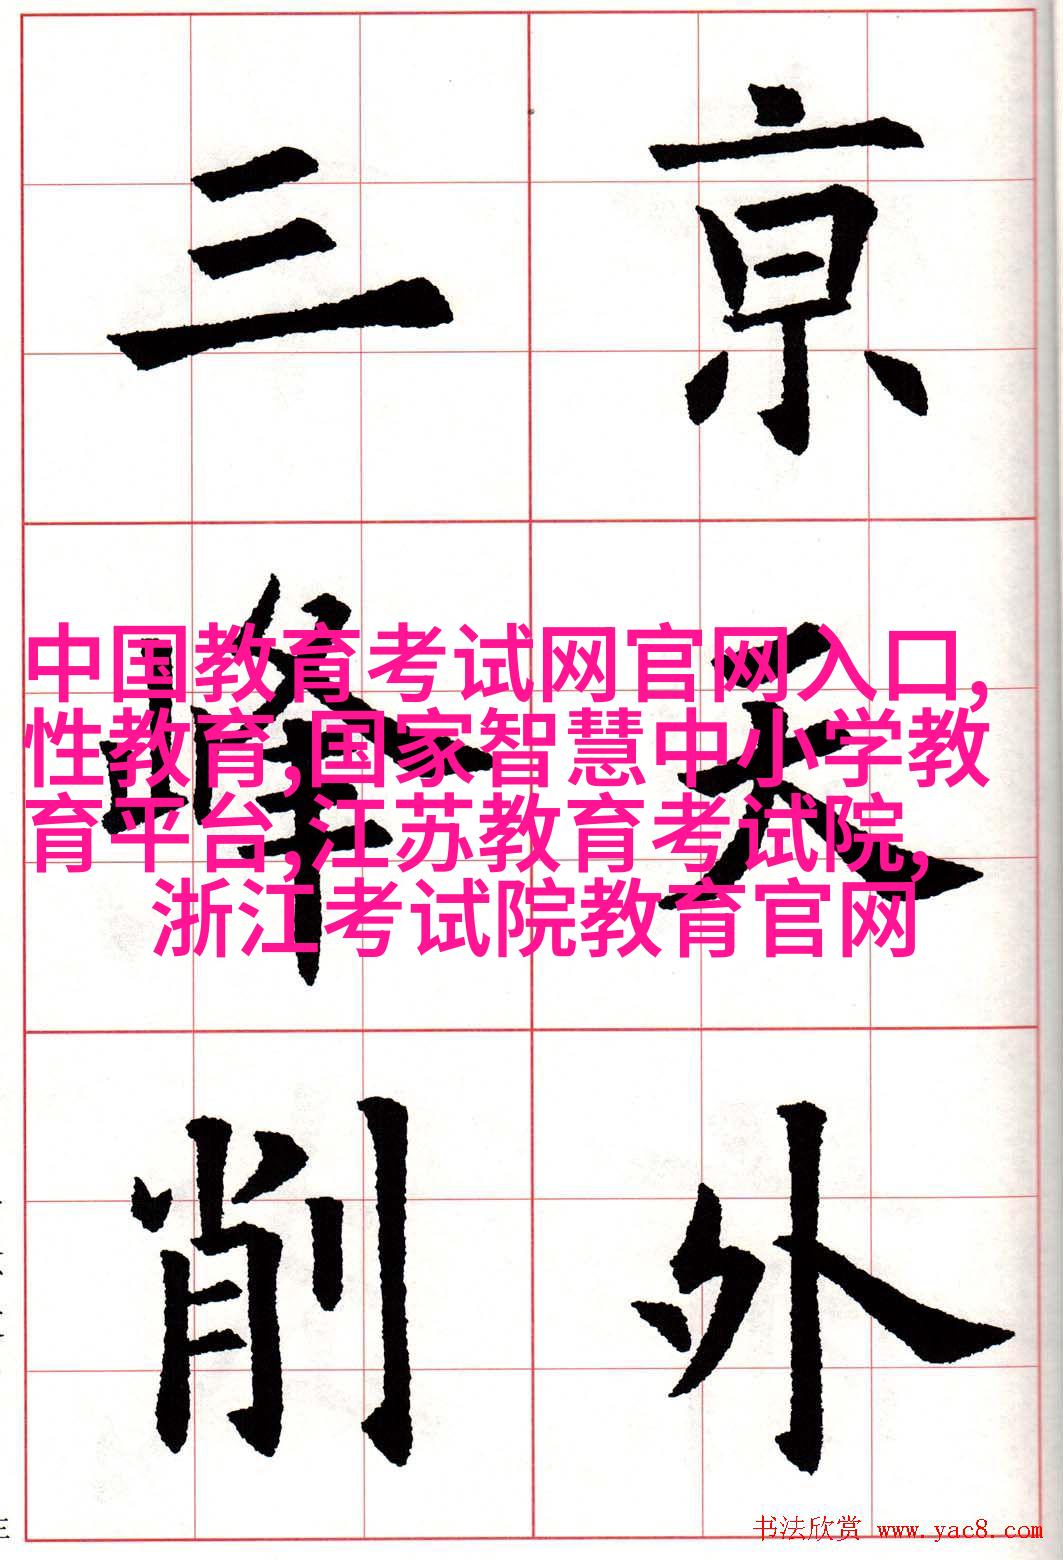 亰天外
三峰削
中国教育考试网官网入口,
性教育,国家智慧中小学教
育平台,江苏教育考试院,
浙江考试院教育官网
书法欣赏 www.yac8.com